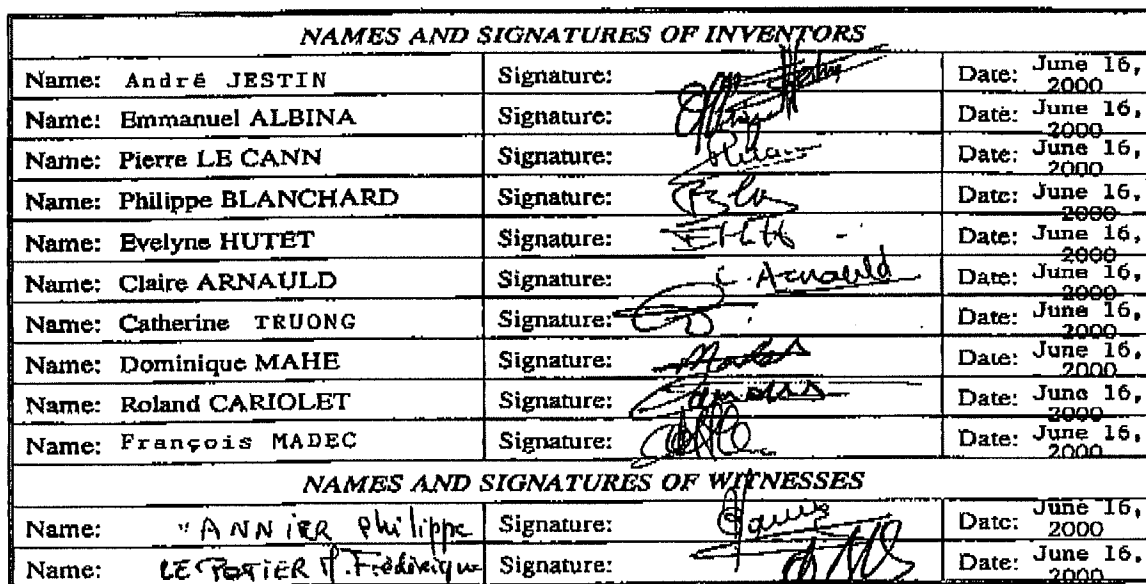 NAMES AND SIGNATURES OF INVENTORS
Name: André JESTIN Signature: Date: June 16, 2000
Name: Emmanuel ALBINA Signature: Date: June 16, 2000
Name: Pierre LE CANN Signature: Date: June 16, 2000
Name: Philippe BLANCHARD Signature: Date: June 16, 2000
Name: Evelyne HUTET Signature: Date: June 16, 2000
Name: Claire ARNAULD Signature: C. Arnauld Date: June 16, 2000
Name: Catherine TRUONG Signature: Date: June 16, 2000
Name: Dominique MAHE Signature: Date: June 16, 2000
Name: Roland CARIOLET Signature: Date: June 16, 2000
Name: François MADEC Signature: Date: June 16, 2000
NAMES AND SIGNATURES OF WITNESSES
Name: Philippe Signature: Date: June 16, 2000
Name: LE POTIER Frédérique Signature: Date: June 16, 2000